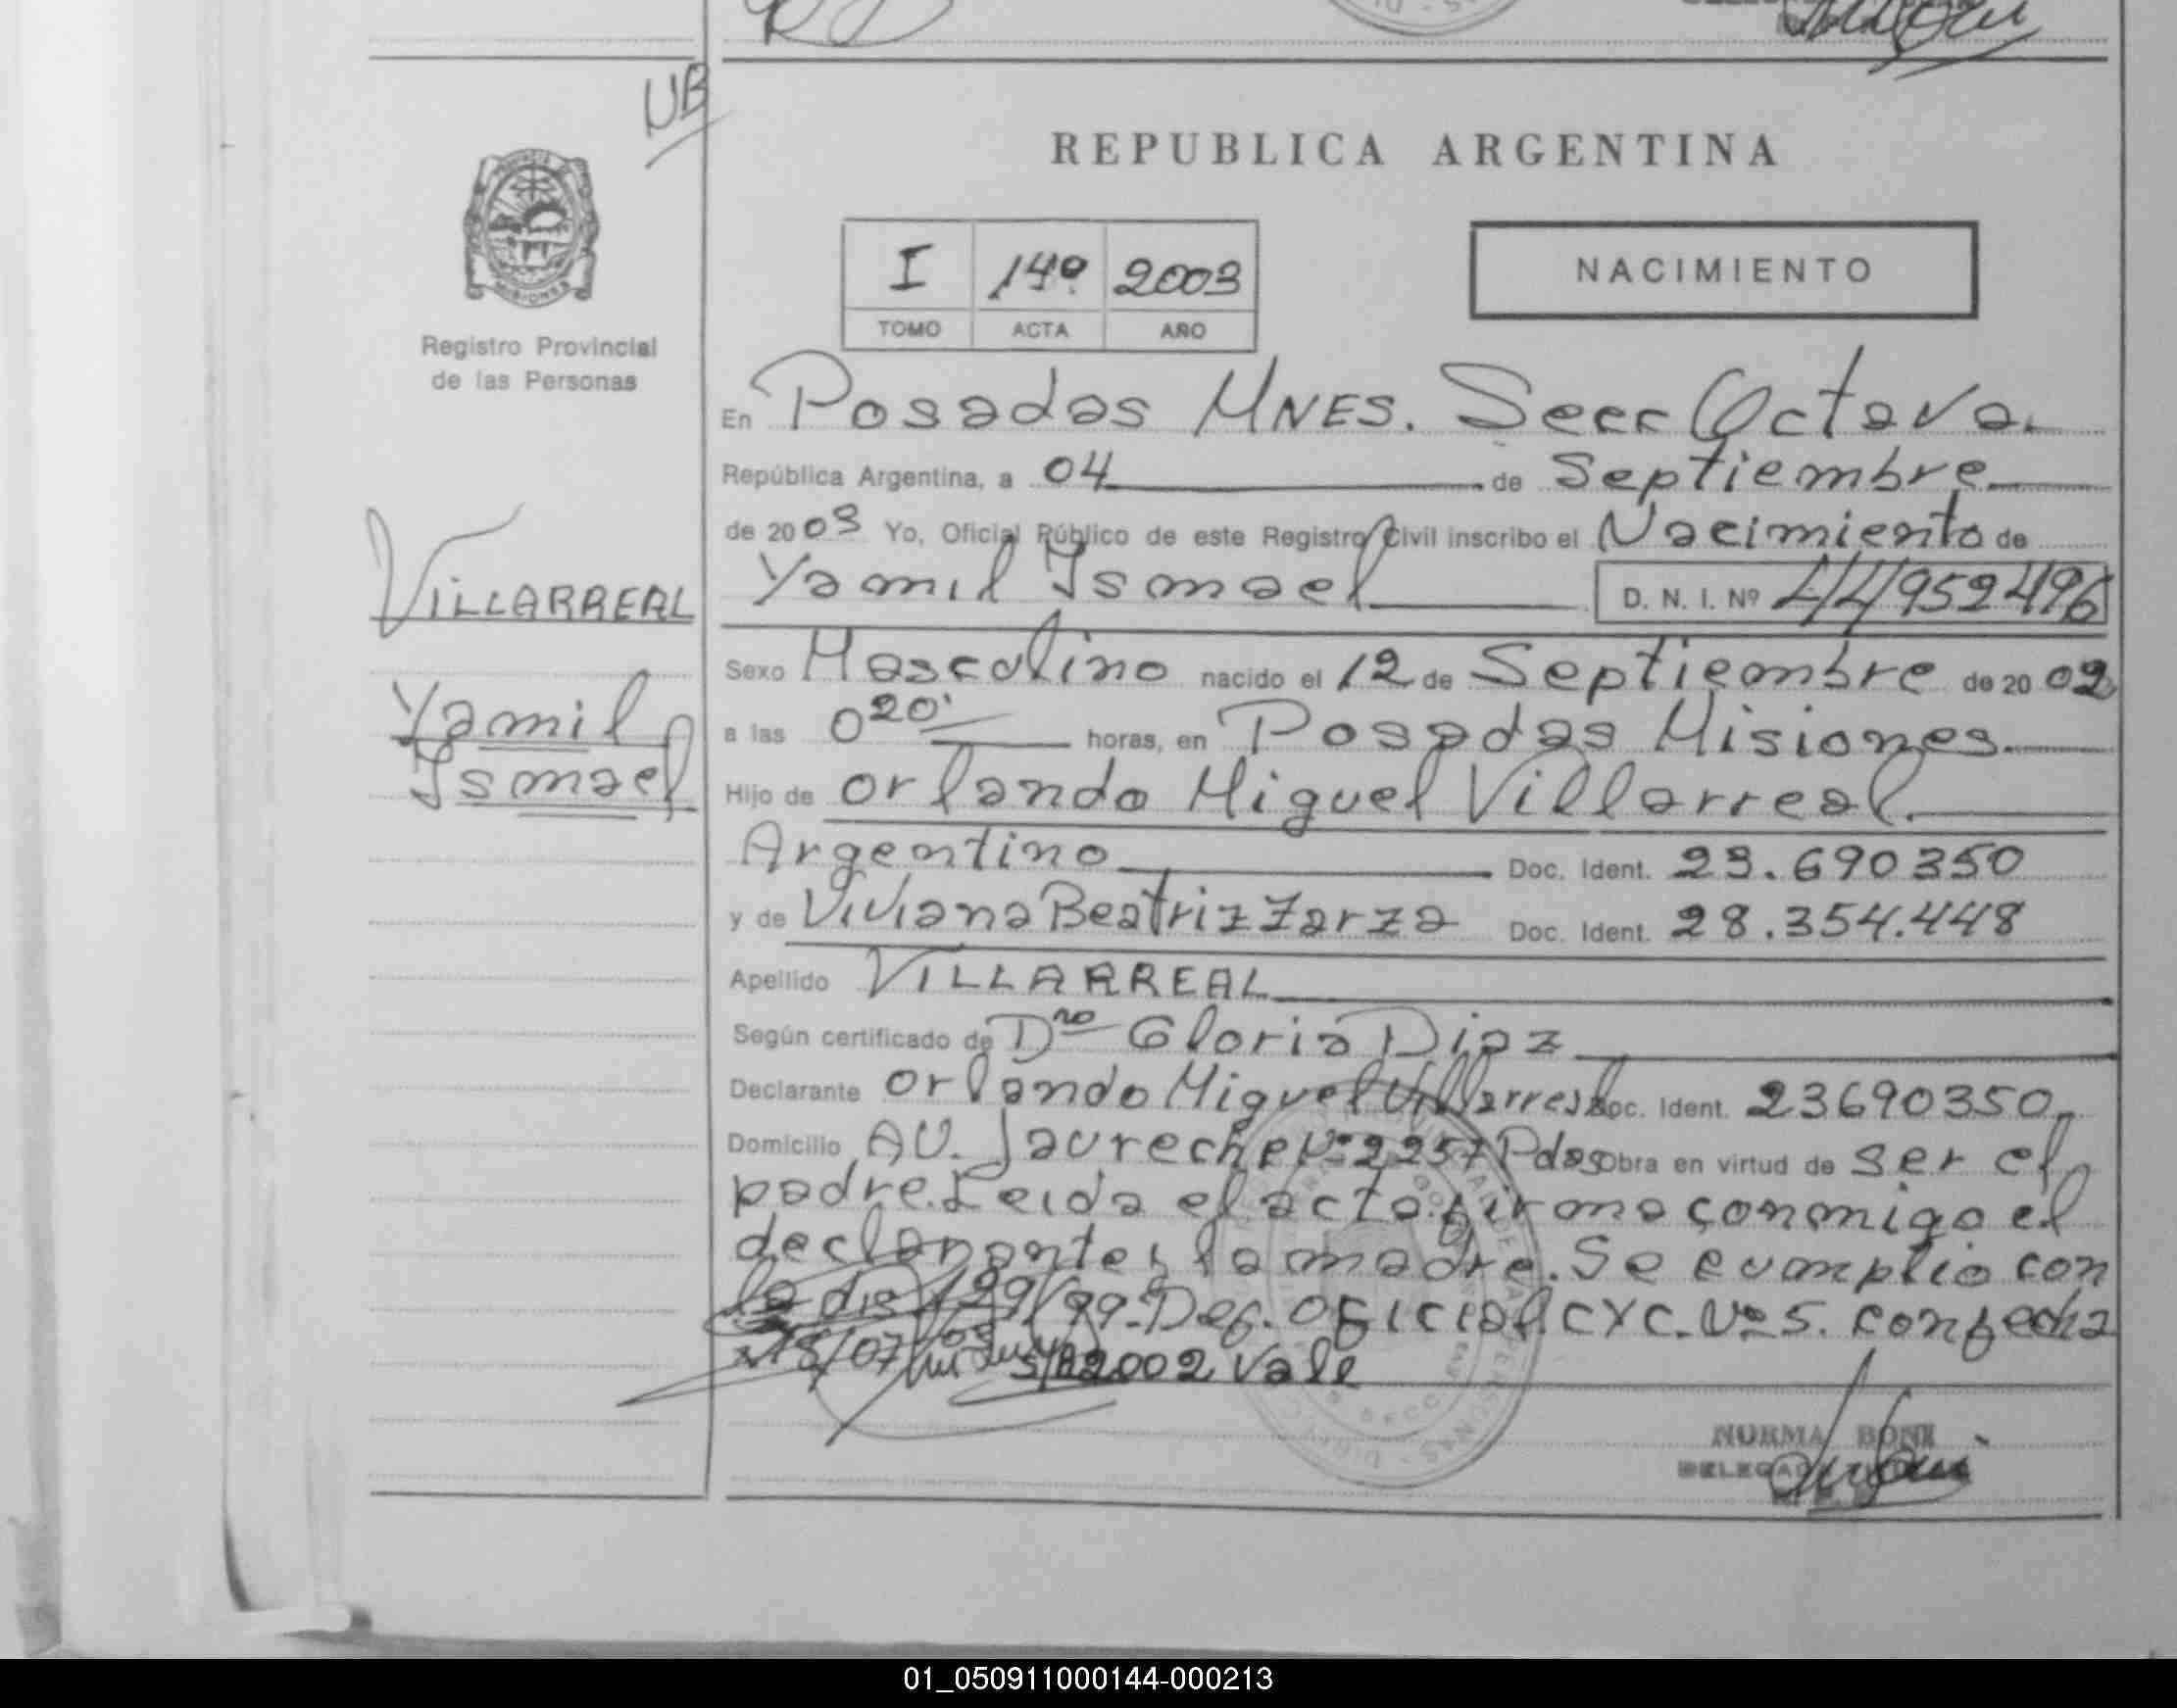 UB
REPUBLICA ARGENTINA
I 149 2003
TOMO ACTA AÑO
NACIMIENTO
MISIONES
Registro Provincial
de las Personas
VILLARREAL
Yamil
Ismael
En Posadas MNES. Secc Octava.
República Argentina, a 04 de Septiembre
de 2003 Yo, Oficial Público de este Registro Civil inscribo el Nacimiento de
Yamil Ismael D. N. I. Nº 44952496
Sexo Masculino nacido el 12 de Septiembre de 2002
a las 0 20' horas, en Posadas Misiones.
Hijo de Orlando Miguel Villarreal.
Argentino Doc. Ident. 23.690350
y de Viviana Beatriz Zarza Doc. Ident. 28.354.448
Apellido VILLARREAL
Según certificado de Dra Gloria Diaz
Declarante Orlando Miguel Villarreal Doc. Ident. 23690350
Domicilio AV. Jaureche Nº 2257 Pdas Obra en virtud de ser el
padre. Leida el acta firma conmigo el
declarante y la madre. Se cumplio con
la dis 129/99. Def. Oficial CYC. Nº 5. con fecha
15/07/03 S/R 2002 Vale
NORMA BONI
01_050911000144-000213